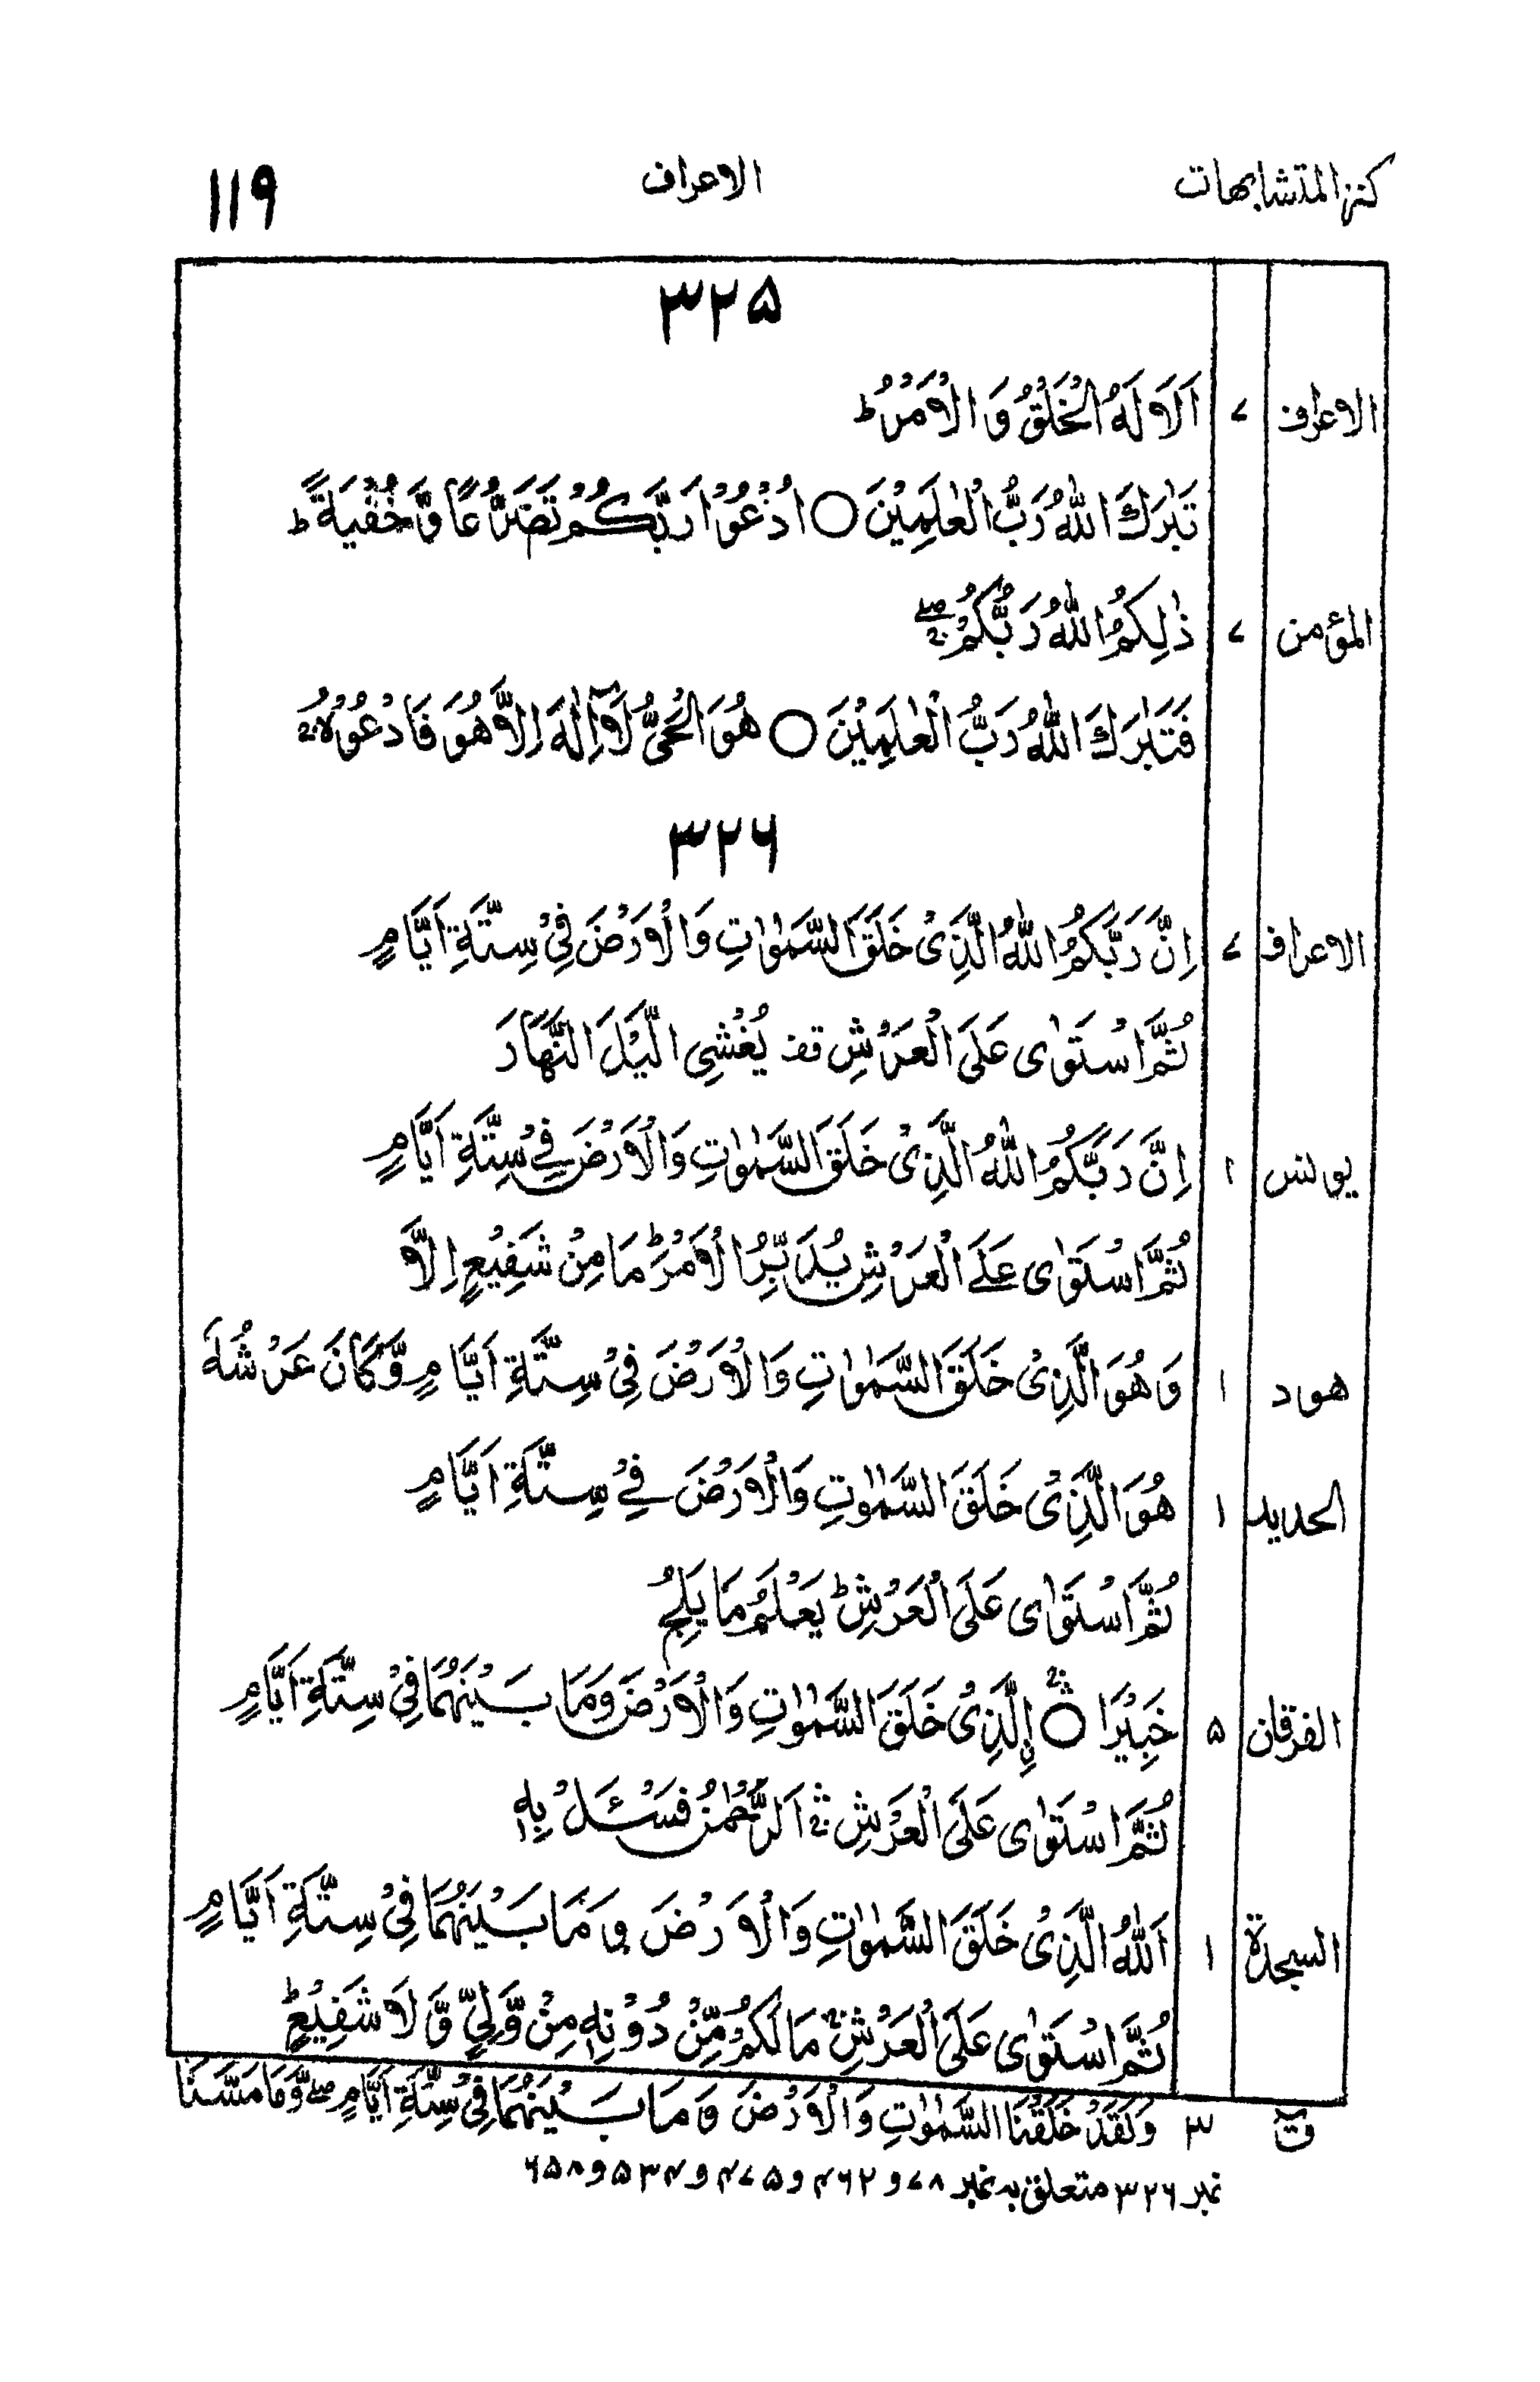 كنز المتشابهات الاعراف ۱۱۹
۳۲۵
الاعراف ۷ اَلَا لَهُ الْخَلْقُ وَ الْاَمْرُ ؕ
تَبٰرَكَ اللّٰهُ رَبُّ الْعٰلَمِيْنَ ○ اُدْعُوْا رَبَّكُمْ تَضَرُّعًا وَّ خُفْيَةً ؕ
المؤمن ۷ ذٰلِكُمُ اللّٰهُ رَبُّكُمْ ۖۚ
فَتَبٰرَكَ اللّٰهُ رَبُّ الْعٰلَمِيْنَ ○ هُوَ الْحَىُّ لَاۤ اِلٰهَ اِلَّا هُوَ فَادْعُوْهُ
۳۲۶
الاعراف ۷ اِنَّ رَبَّكُمُ اللّٰهُ الَّذِىْ خَلَقَ السَّمٰوٰتِ وَالْاَرْضَ فِىْ سِتَّةِ اَيَّامٍ
ثُمَّ اسْتَوٰى عَلَى الْعَرْشِ قف يُغْشِى الَّيْلَ النَّهَارَ
يونس ۱ اِنَّ رَبَّكُمُ اللّٰهُ الَّذِىْ خَلَقَ السَّمٰوٰتِ وَالْاَرْضَ فِىْ سِتَّةِ اَيَّامٍ
ثُمَّ اسْتَوٰى عَلَى الْعَرْشِ يُدَبِّرُ الْاَمْرَ ؕ مَا مِنْ شَفِيْعٍ اِلَّا
هود ۱ وَ هُوَ الَّذِىْ خَلَقَ السَّمٰوٰتِ وَالْاَرْضَ فِىْ سِتَّةِ اَيَّامٍ وَّ كَانَ عَرْشُهٗ
الحديد ۱ هُوَ الَّذِىْ خَلَقَ السَّمٰوٰتِ وَالْاَرْضَ فِىْ سِتَّةِ اَيَّامٍ
ثُمَّ اسْتَوٰى عَلَى الْعَرْشِ ؕ يَعْلَمُ مَا يَلِجُ
الفرقان ۵ خَبِيْرًا ○ ۨالَّذِىْ خَلَقَ السَّمٰوٰتِ وَالْاَرْضَ وَمَا بَيْنَهُمَا فِىْ سِتَّةِ اَيَّامٍ
ثُمَّ اسْتَوٰى عَلَى الْعَرْشِ ۛۚ اَلرَّحْمٰنُ فَسْـَٔـلْ بِهٖ
السجدة ۱ اَللّٰهُ الَّذِىْ خَلَقَ السَّمٰوٰتِ وَالْاَرْضَ وَ مَا بَيْنَهُمَا فِىْ سِتَّةِ اَيَّامٍ
ثُمَّ اسْتَوٰى عَلَى الْعَرْشِ مَا لَكُمْ مِّنْ دُوْنِهٖ مِنْ وَّلِىٍّ وَّ لَا شَفِيْعٍ ؕ
قٓ ۳ وَلَقَدْ خَلَقْنَا السَّمٰوٰتِ وَالْاَرْضَ وَ مَا بَيْنَهُمَا فِىْ سِتَّةِ اَيَّامٍ ۖ وَّ مَا مَسَّنَا
نمبر ۳۲۶ متعلق بہ نمبر ۷۸ و ۴۶۲ و ۴۷۵ و ۵۳۴ و ۶۵۸